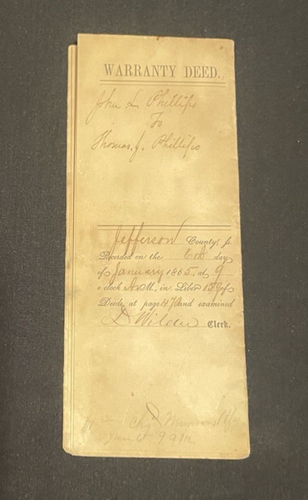 WARRANTY DEED.
John L. Phillips
To
Thomas J. Phillips
Jefferson County, ss
Recorded on the 6th day
of January 1865 at 9
o'clock A.M., in Liber of
Deeds at page and examined
D Wilder Clerk.
9 am